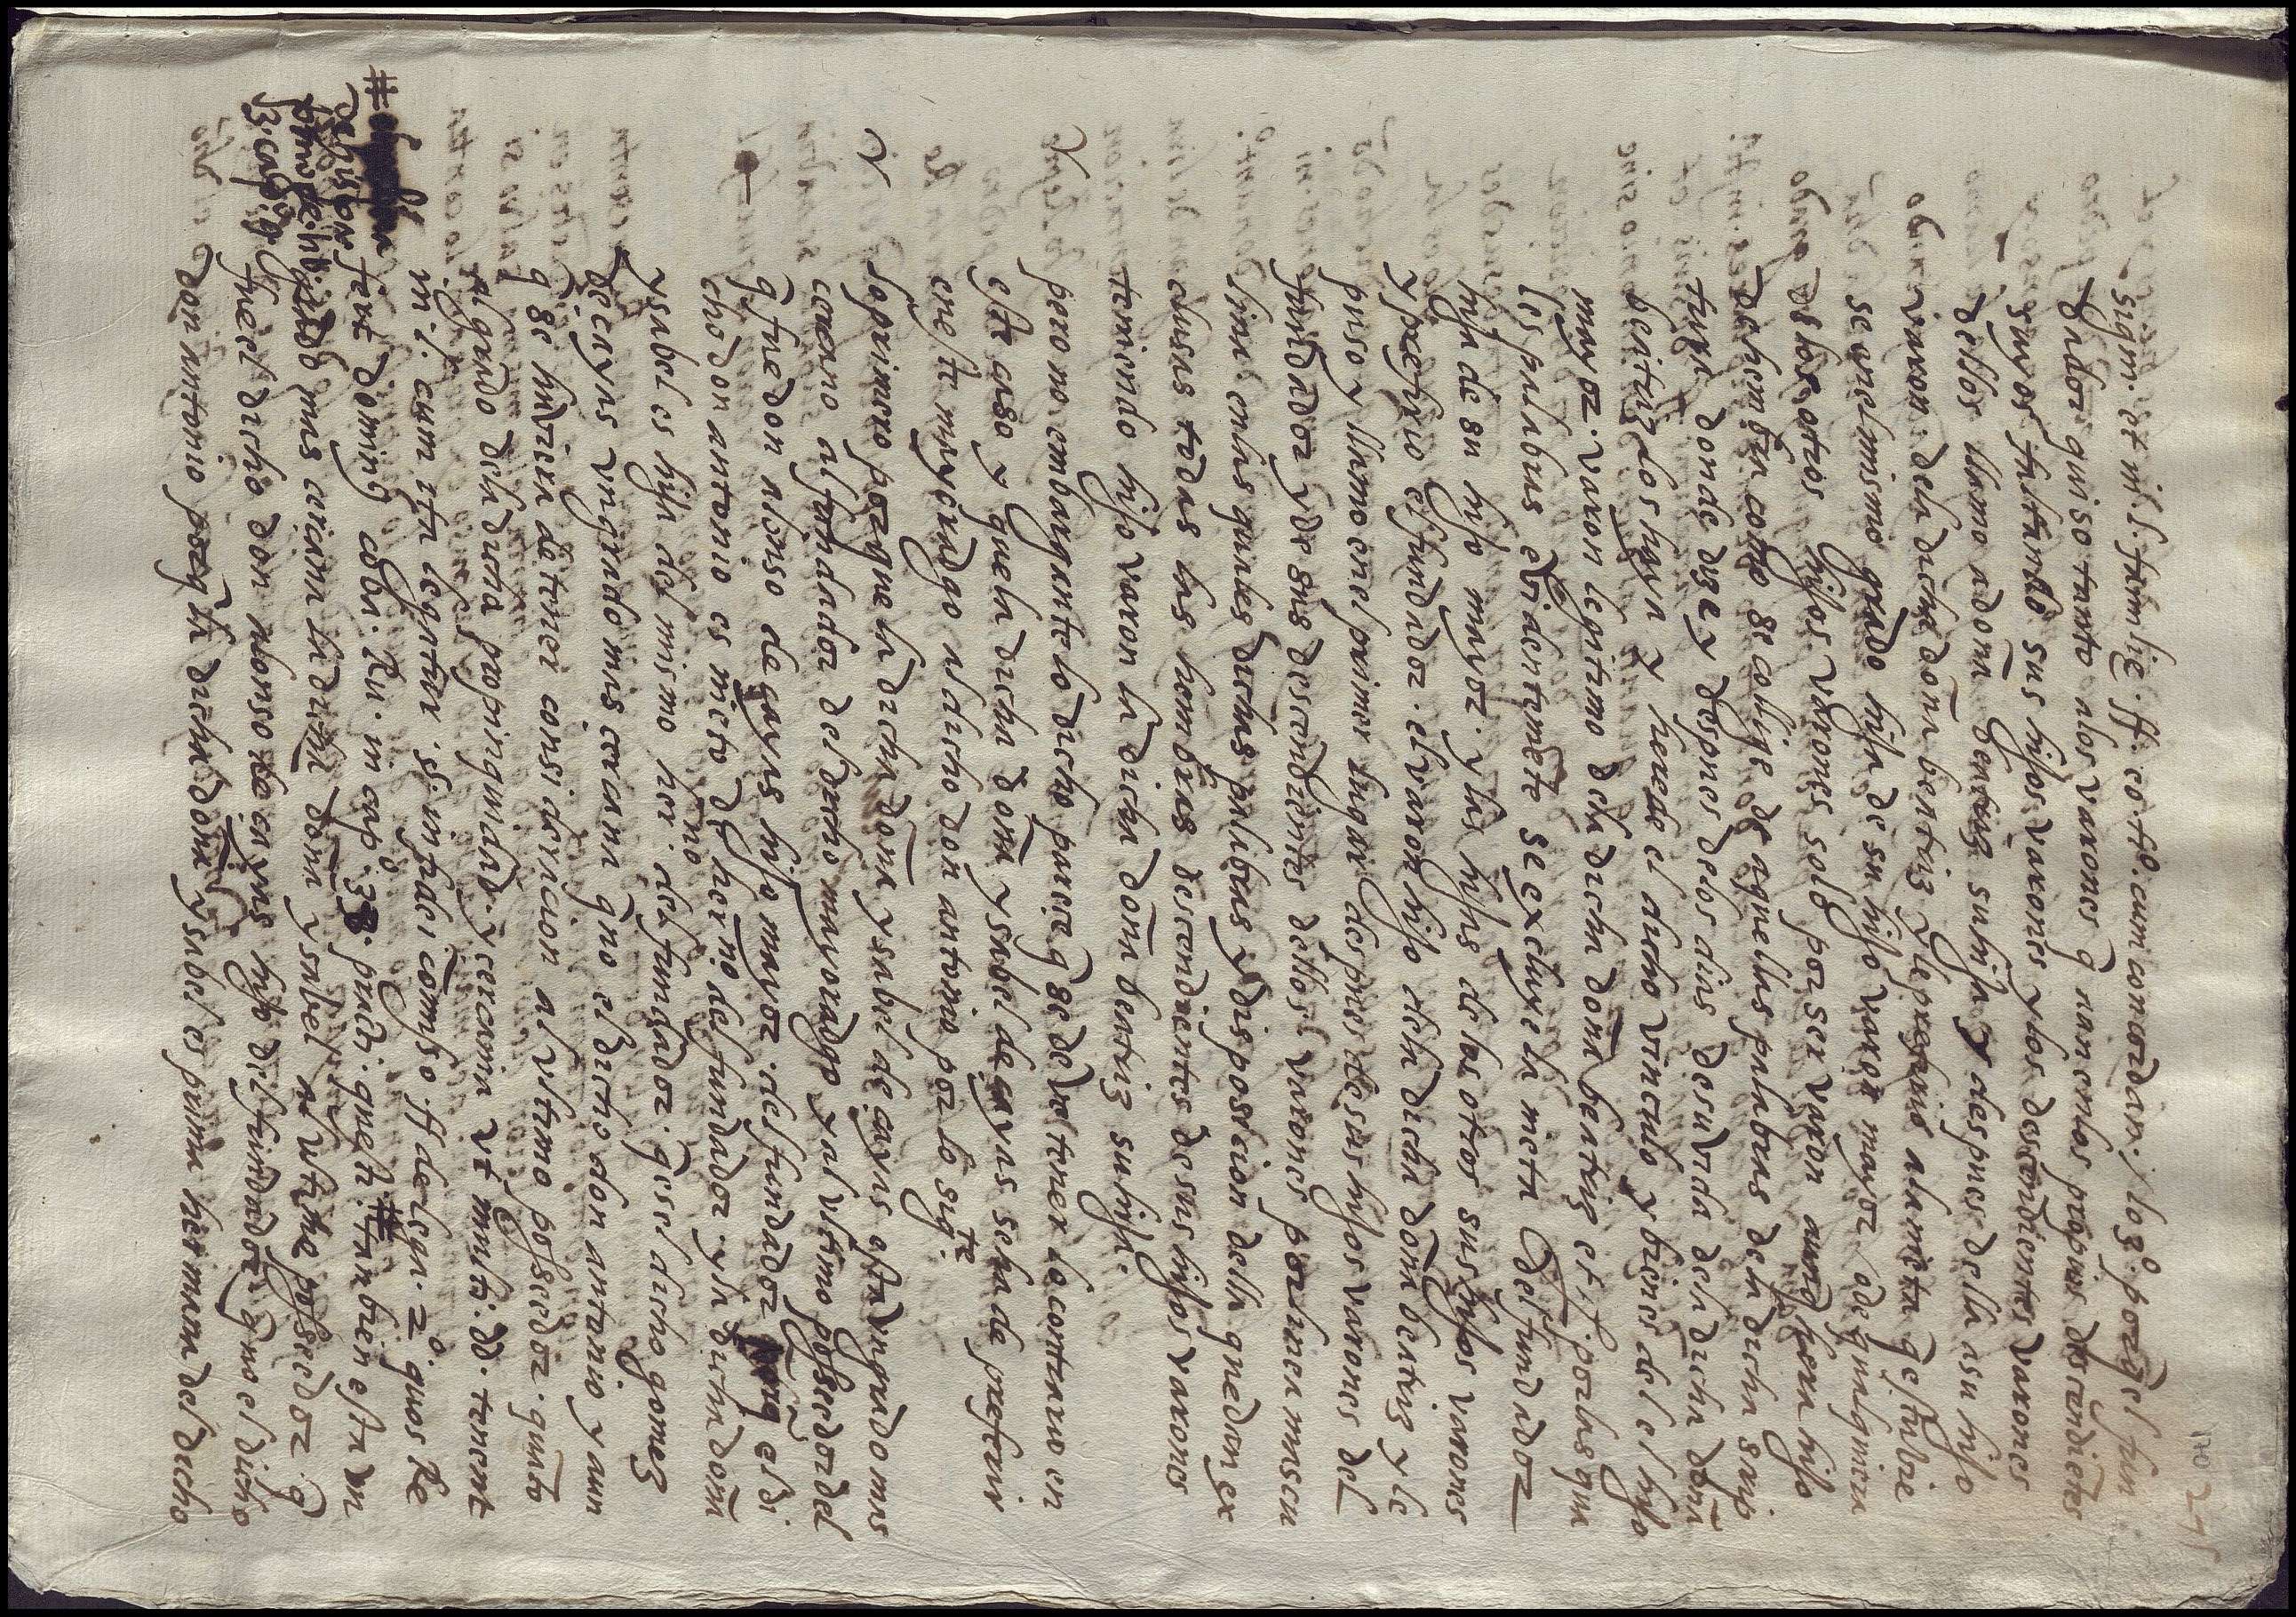 signi. et in l. familie. ff. eo. tt. cum concordan. / lo 3º. porq̃ el fun
dador quiso tanto a los varones q̃ nancen los propios descendiẽtes
suyos faltando sus hijos varones y los descendientes varones
dellos llamo a doña beatriz su hija y despues della a su hijo
varon. de la dicha doña beatriz y le prefirio a la nieta q̃ estubie
se en el mismo grado hija de su hijo varon mayor / o de qualquiera
de los otros hijos varones solo por ser varon aunq̃ hera hijo
de hembra como se colige de aquellas palabras de la dicha scrip
tura donde dize y despues de los dias de su vida de la dicha doña
beatriz los haya y herede el dicho vinculo y bienes del el hijo
mayor varon legitimo de la dicha doña beatriz et c̃. por las qua
les palabras evidentemẽte se excluye la nieta del fundador
hija de su hijo mayor. y las hijas de los otros sus hijos varones
y prefirio el fundador. el varon hijo de la dicha doña beatriz y le
puso y llamo en el primer lugar despues de sus hijos varones del
fundador y de sus descendientes dellos varones por linea mascu
lina en las quales dichas palabras y disposicion della quedan ex
clusas todas las hembras descendientes de sus hijos varones
teniendo hijo varon la dicha doña beatriz su hija.
pero no embargante lo dicho parece q̃ se deve tener lo contrario en
este caso y que la dicha doña ysabel de cayas se ha de preferir
en este mayorazgo al dicho don antonio por lo sigte.
lo primero porque la dicha doña ysabel de cayas esta un grado mas
cercano al fundador del dicho mayorazgo y al ultimo posseedor del
q̃ fue don alonso de cayas hijo mayor del fundador porq̃ el di
cho don antonio es nieto de herno del fundador y la dicha doña
ysabel es hija del mismo herno. del fundador. q̃ es el dicho gomez
de cayas un grado mas cercana q̃ no el dicho don antonio y aun
q̃ se hubiera de tener consideracion al ultimo posseedor. quãto
al grado de la dicha propinquidad. y cercania ut multi. dd. tenent
in l. cum ita legatur §. in fidei comiso. ff. de lega. 2º. quos Re
fert doming. cov. Ru. in cap. 38. pract. quest. # tanbien esta un
grado mas cercana la dicha doña ysabel al ultimo posseedor. q̃
fue el dicho don alonso de cayas hijo del fundador q̃ no el dicho
don antonio porq̃ la dicha doña ysabel es prima hermana del dicho